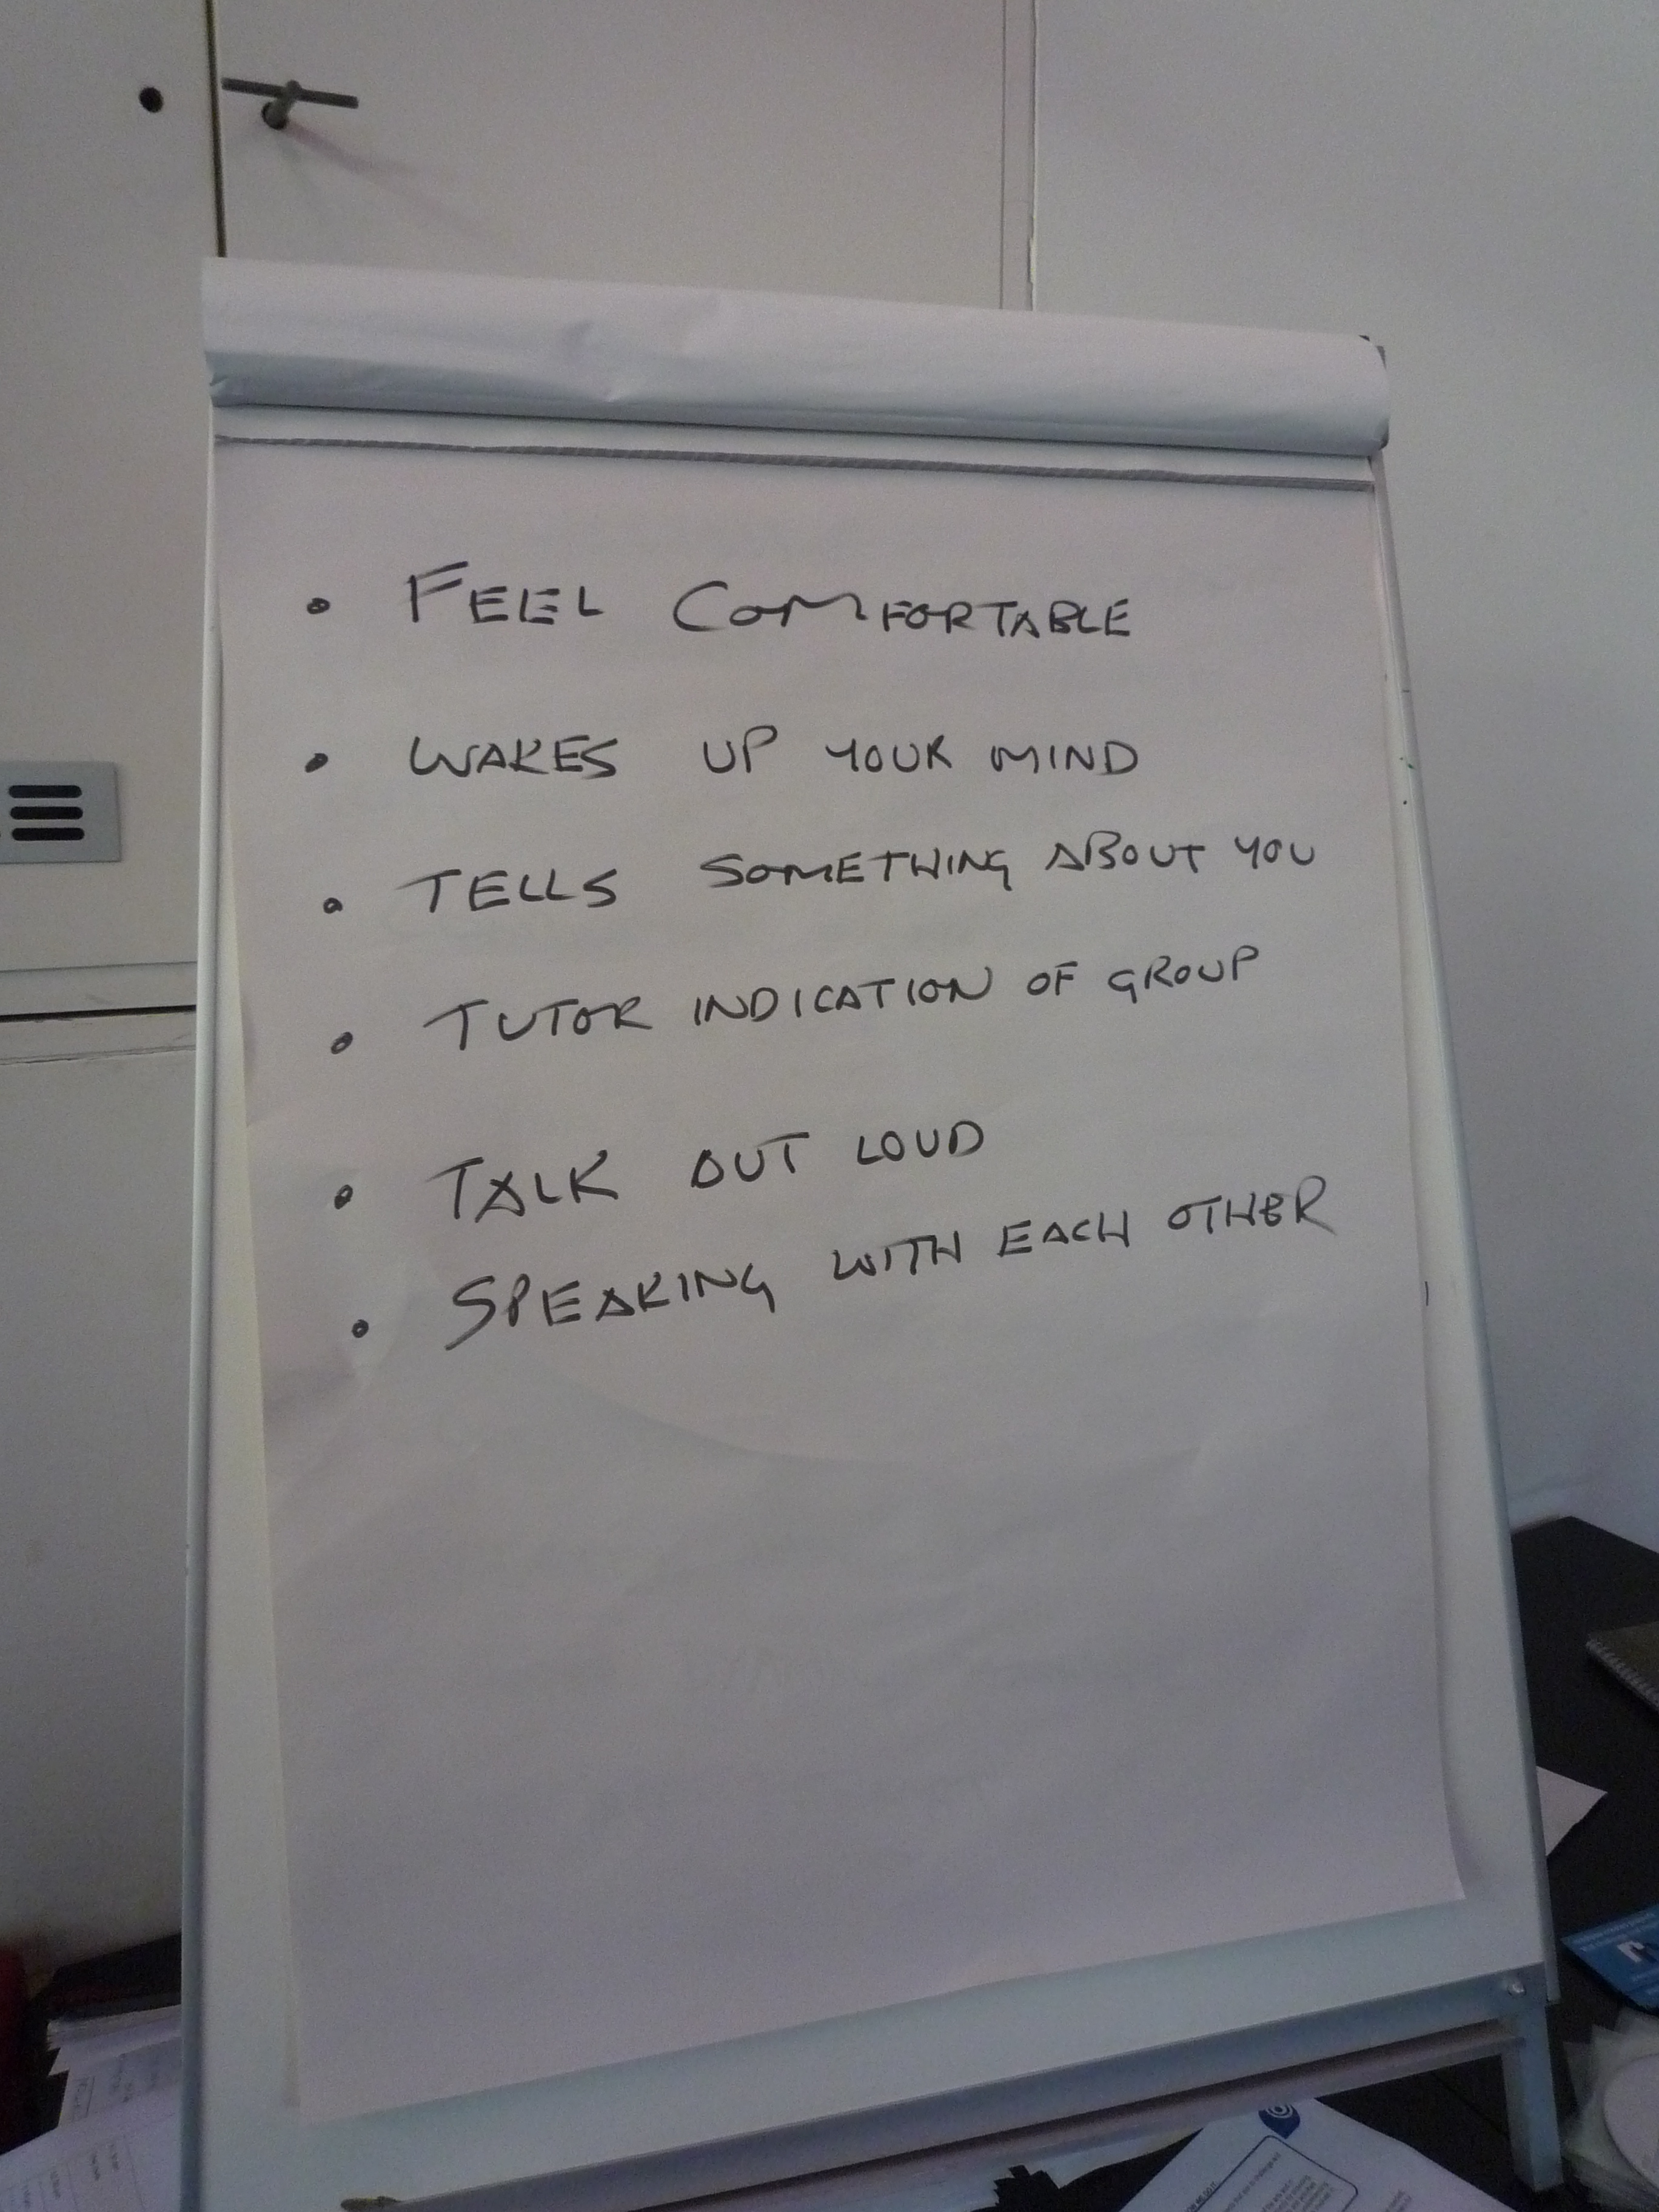 • FEEL COMFORTABLE
• WAKES UP YOUR MIND
• TELLS SOMETHING ABOUT YOU
• TUTOR INDICATION OF GROUP
• TALK OUT LOUD
• SPEAKING WITH EACH OTHER